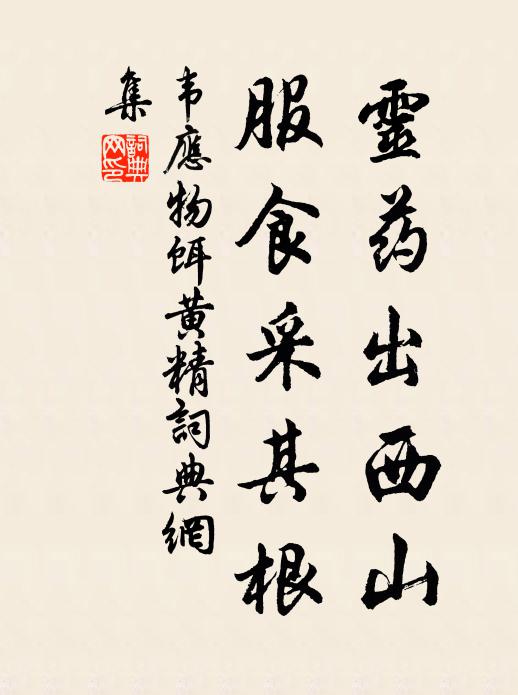 靈药出西山
服食采其根
韦應物餌黄精詞典網
集
詞典
网印